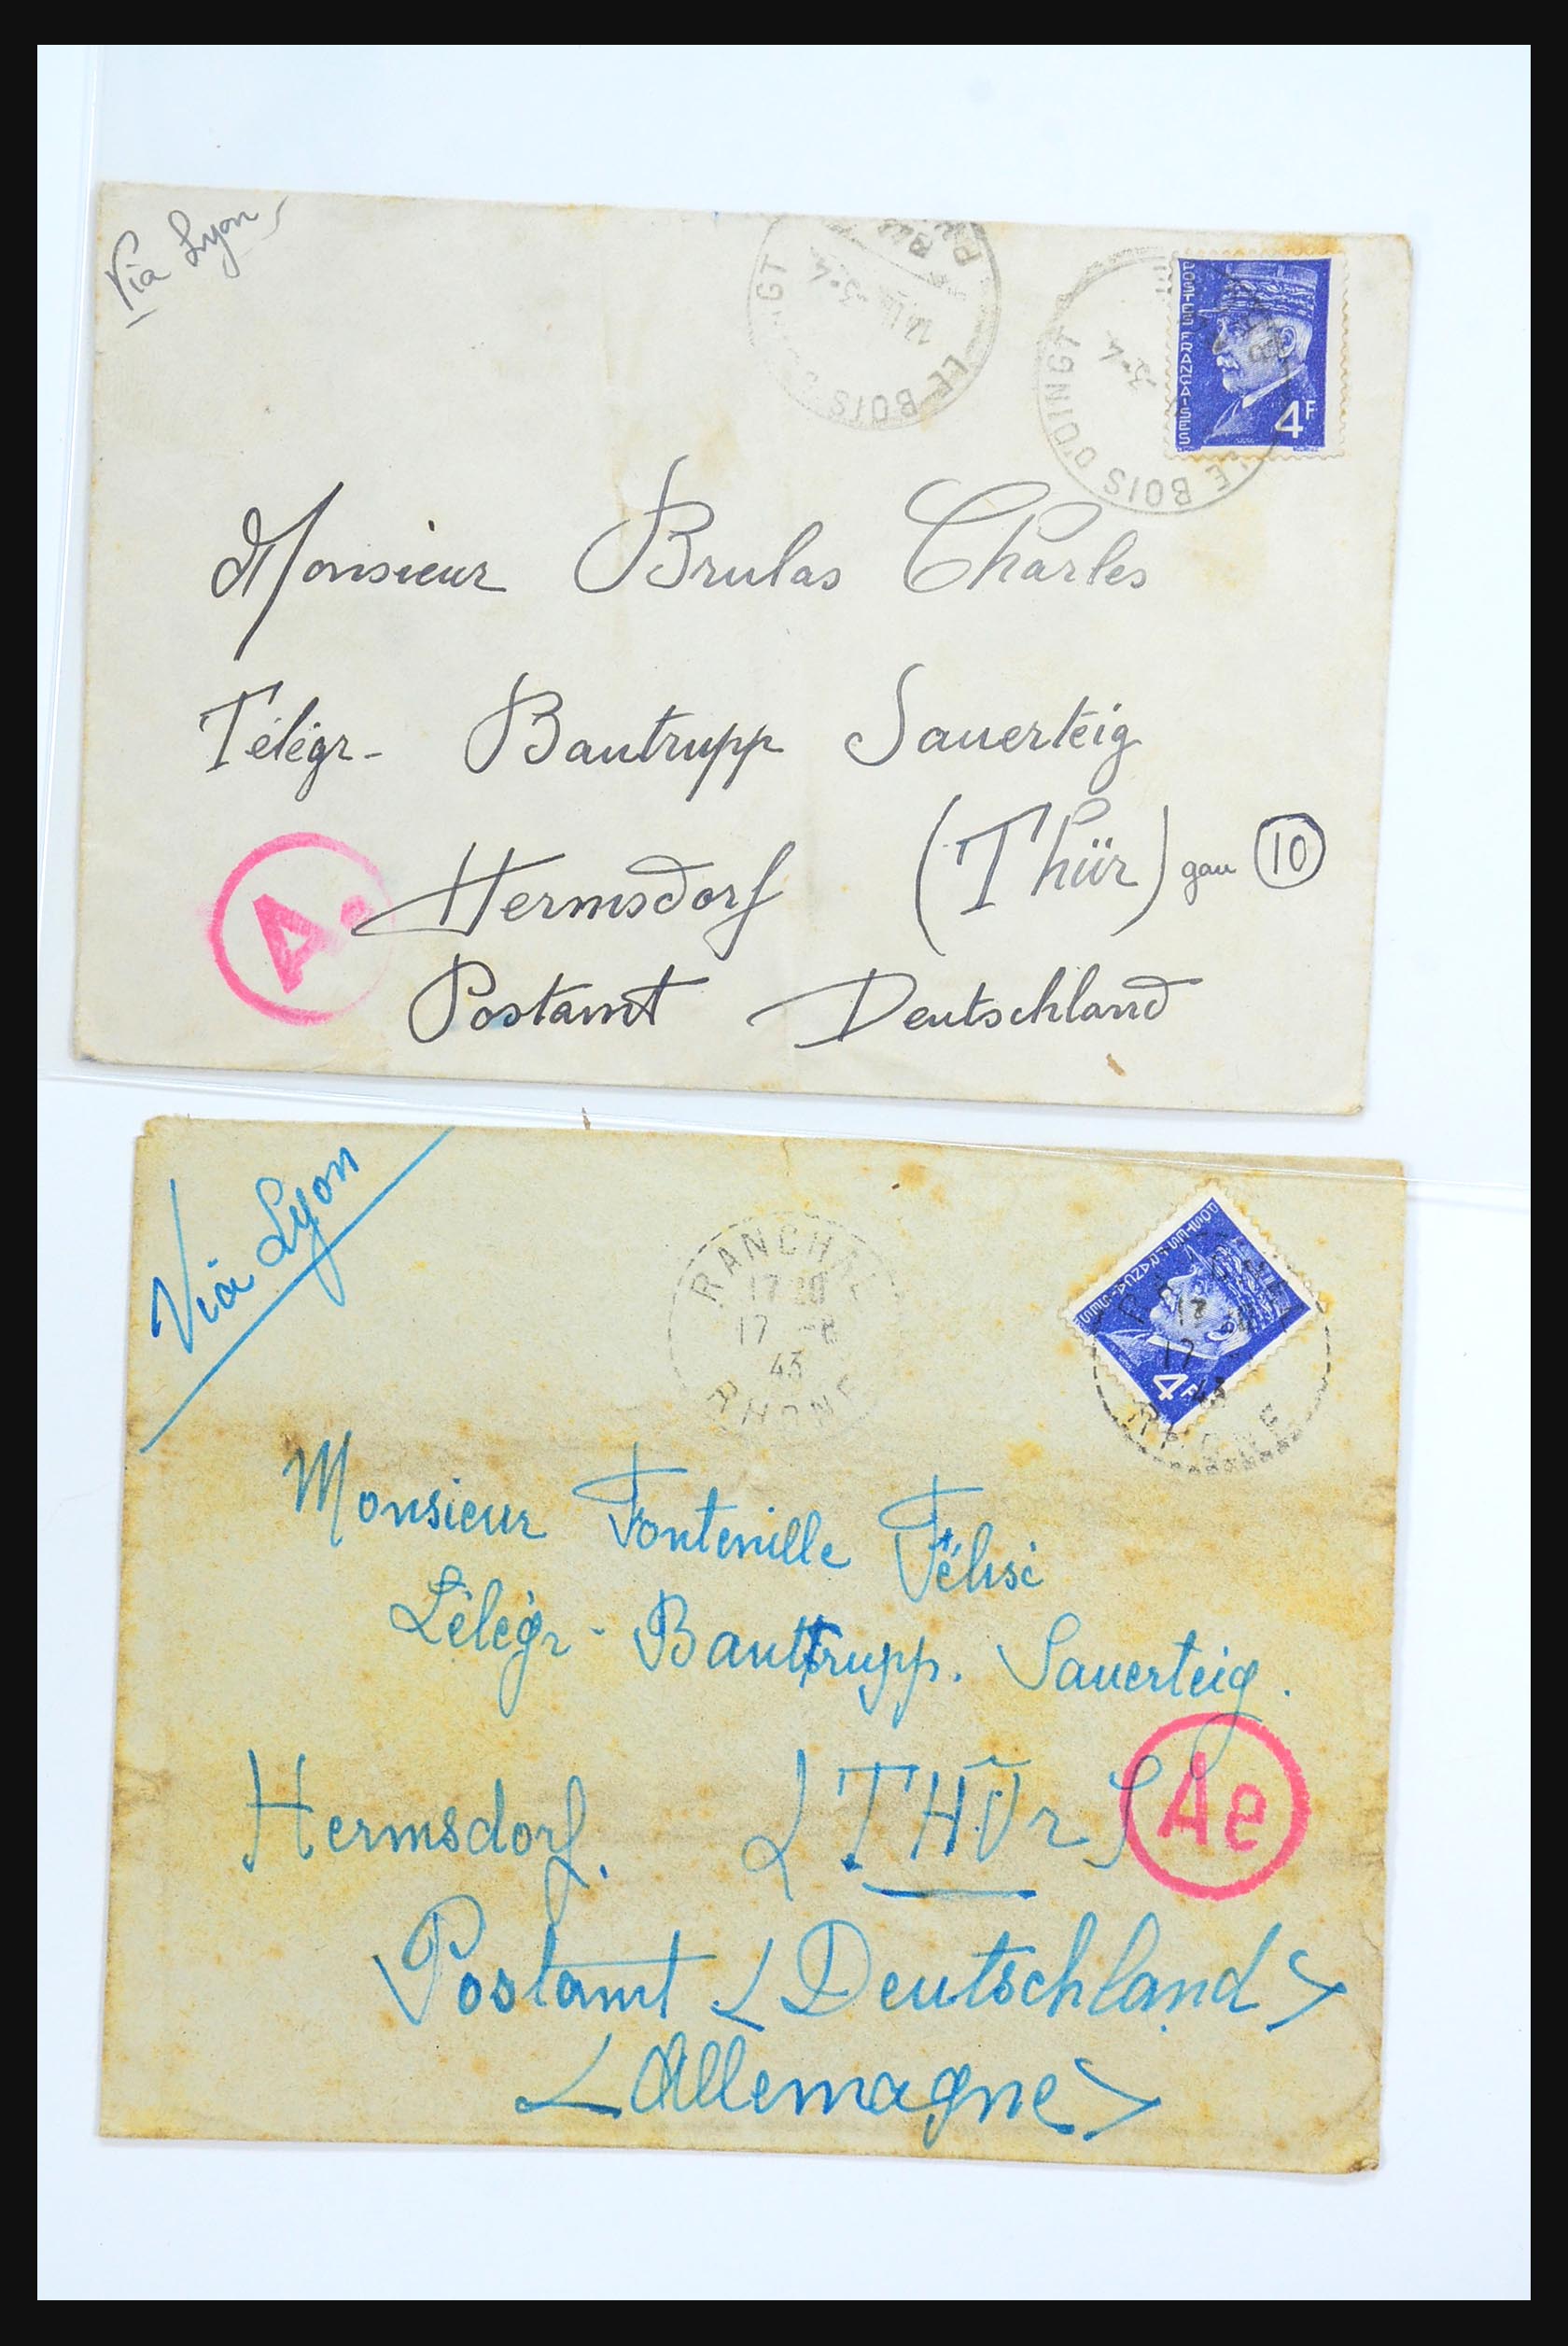 Via Lyon
LE BOIS D'OINGT
POSTES FRANÇAISES
4F
LE BOIS D'OINGT
Monsieur Brulas Charles
Télégr- Bautrupp Sauerteig
Hermsdorf (Thür) gau 10
A.
Postamt Deutschland
Via Lyon
RANCHAL
17 -8
43
RHONE
POSTES FRANÇAISES
4F
17
43
RHONE
Monsieur Fontenille Félisi
Télégr- Bauttrupp. Sauerteig.
Hermsdorf. (THÜr)
Ae
Postamt <Deutschland>
<Allemagne>